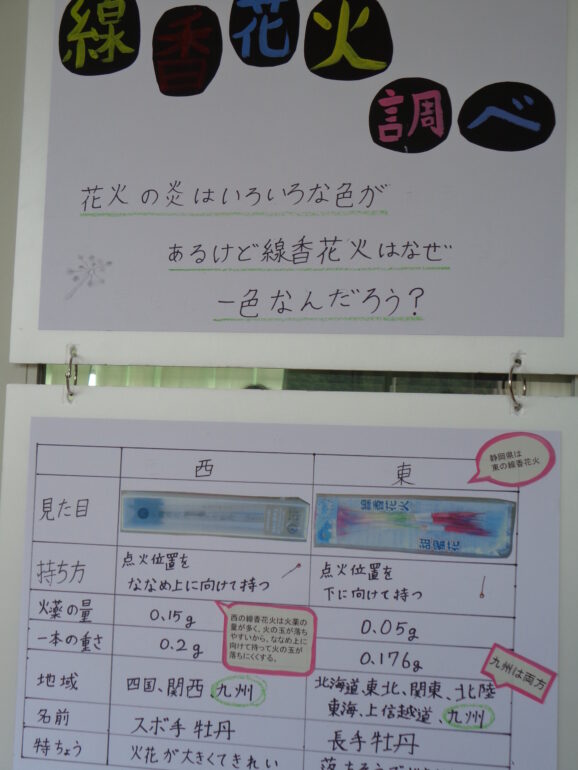 線香花火
調べ
花火の炎はいろいろな色が
あるけど線香花火はなぜ
一色なんだろう?
西 東
静岡県は
東の線香花火
見た目
線香花火
持ち方
点火位置を
ななめ上に向けて持つ
点火位置を
下に向けて持つ
火薬の量 0.15g 0.05g
西の線香花火は火薬の
量が多く、火の玉が落ち
やすいから、ななめ上に
向けて持って火の玉が
落ちにくくする。
一本の重さ 0.2g 0.176g
九州は両方
地域 四国、関西、九州
北海道、東北、関東、北陸
東海、上信越道、九州
名前 スボ手牡丹 長手牡丹
特ちょう 火花が大きくてきれい